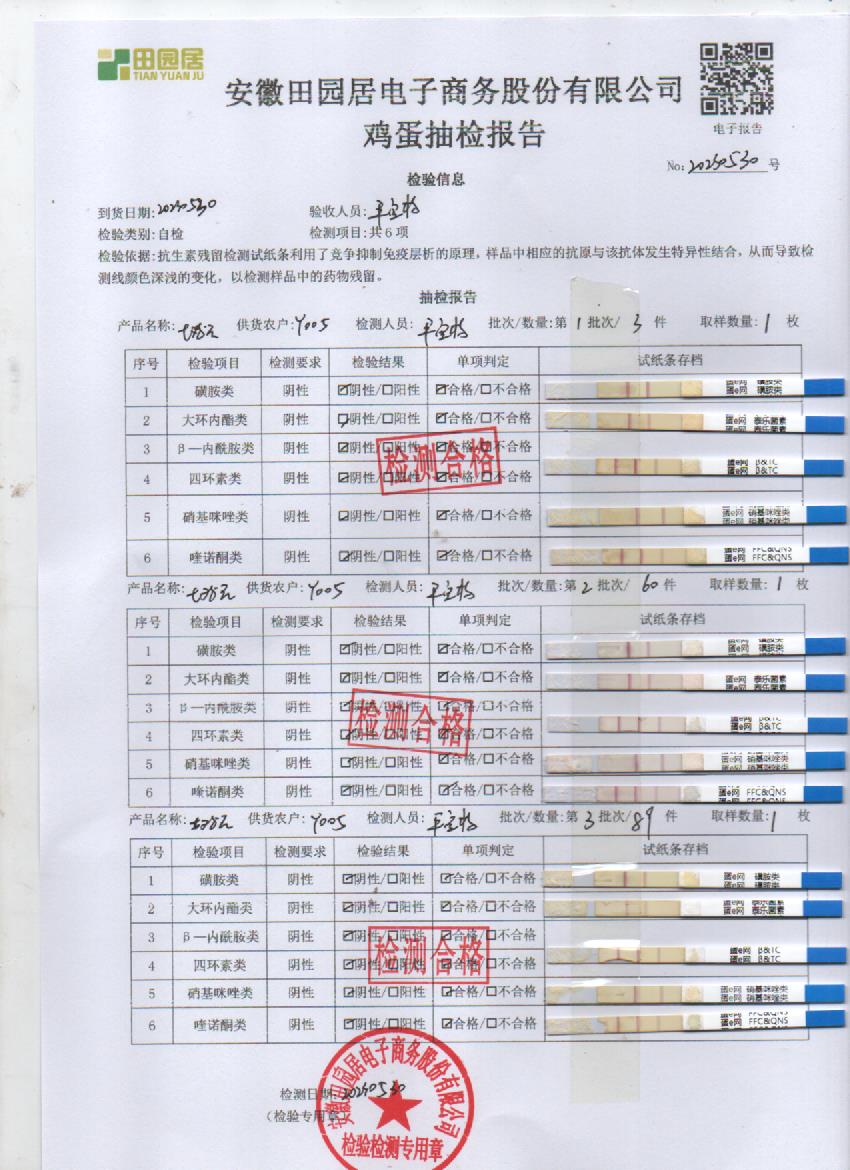 田园居
TIAN YUAN JU
安徽田园居电子商务股份有限公司
鸡蛋抽检报告
电子报告
No: 20230530 号
检验信息
到货日期: 20230530 验收人员:
检验类别: 自检 检测项目: 共6项
检验依据: 抗生素残留检测试纸条利用了竞争抑制免疫层析的原理，样品中相应的抗原与该抗体发生特异性结合，从而导致检
测线颜色深浅的变化，以检测样品中的药物残留。
抽检报告
产品名称: 供货农户: Y005 检测人员: 批次/数量:第 1 批次/ 3 件 取样数量: 1 枚
序号 检验项目 检测要求 检验结果 单项判定 试纸条存档
1 磺胺类 阴性 ☑阴性/□阳性 ☑合格/□不合格 蛋e网 磺胺类
2 大环内酯类 阴性 ☑阴性/□阳性 ☑合格/□不合格 蛋e网 泰乐菌素
3 β—内酰胺类 阴性 ☑阴性/□阳性 ☑合格/□不合格
4 四环素类 阴性 ☑阴性/□阳性 ☑合格/□不合格 蛋e网 β&TC
检测合格
5 硝基咪唑类 阴性 ☑阴性/□阳性 ☑合格/□不合格 蛋e网 硝基咪唑类
6 喹诺酮类 阴性 ☑阴性/□阳性 ☑合格/□不合格 蛋e网 FFC&QNS
产品名称: 供货农户: Y005 检测人员: 批次/数量:第 2 批次/ 60 件 取样数量: 1 枚
序号 检验项目 检测要求 检验结果 单项判定 试纸条存档
1 磺胺类 阴性 ☑阴性/□阳性 ☑合格/□不合格 蛋e网 磺胺类
2 大环内酯类 阴性 ☑阴性/□阳性 ☑合格/□不合格 蛋e网 泰乐菌素
3 β—内酰胺类 阴性 ☑阴性/□阳性 ☑合格/□不合格
检测合格
4 四环素类 阴性 ☑阴性/□阳性 ☑合格/□不合格 蛋e网 β&TC
5 硝基咪唑类 阴性 ☑阴性/□阳性 ☑合格/□不合格 蛋e网 硝基咪唑类
6 喹诺酮类 阴性 ☑阴性/□阳性 ☑合格/□不合格 蛋e网 FFC&QNS
产品名称: 供货农户: Y005 检测人员: 批次/数量:第 3 批次/ 89 件 取样数量: 1 枚
序号 检验项目 检测要求 检验结果 单项判定 试纸条存档
1 磺胺类 阴性 ☑阴性/□阳性 ☑合格/□不合格 蛋e网 磺胺类
2 大环内酯类 阴性 ☑阴性/□阳性 ☑合格/□不合格 蛋e网 泰乐菌素
3 β—内酰胺类 阴性 ☑阴性/□阳性 ☑合格/□不合格
检测合格
4 四环素类 阴性 ☑阴性/□阳性 ☑合格/□不合格 蛋e网 β&TC
5 硝基咪唑类 阴性 ☑阴性/□阳性 ☑合格/□不合格 蛋e网 硝基咪唑类
6 喹诺酮类 阴性 ☑阴性/□阳性 ☑合格/□不合格 蛋e网 FFC&QNS
安徽田园居电子商务股份有限公司
检测日期: 20230530
（检验专用章）
检验检测专用章